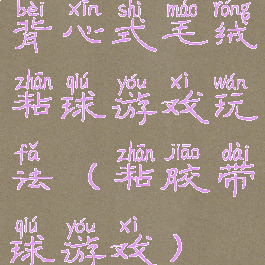 bèi xīn shì máo róng
背心式毛绒
zhān qiú yóu xì wán
粘球游戏玩
fǎ zhān jiāo dài
法（粘胶带
qiú yóu xì
球游戏）